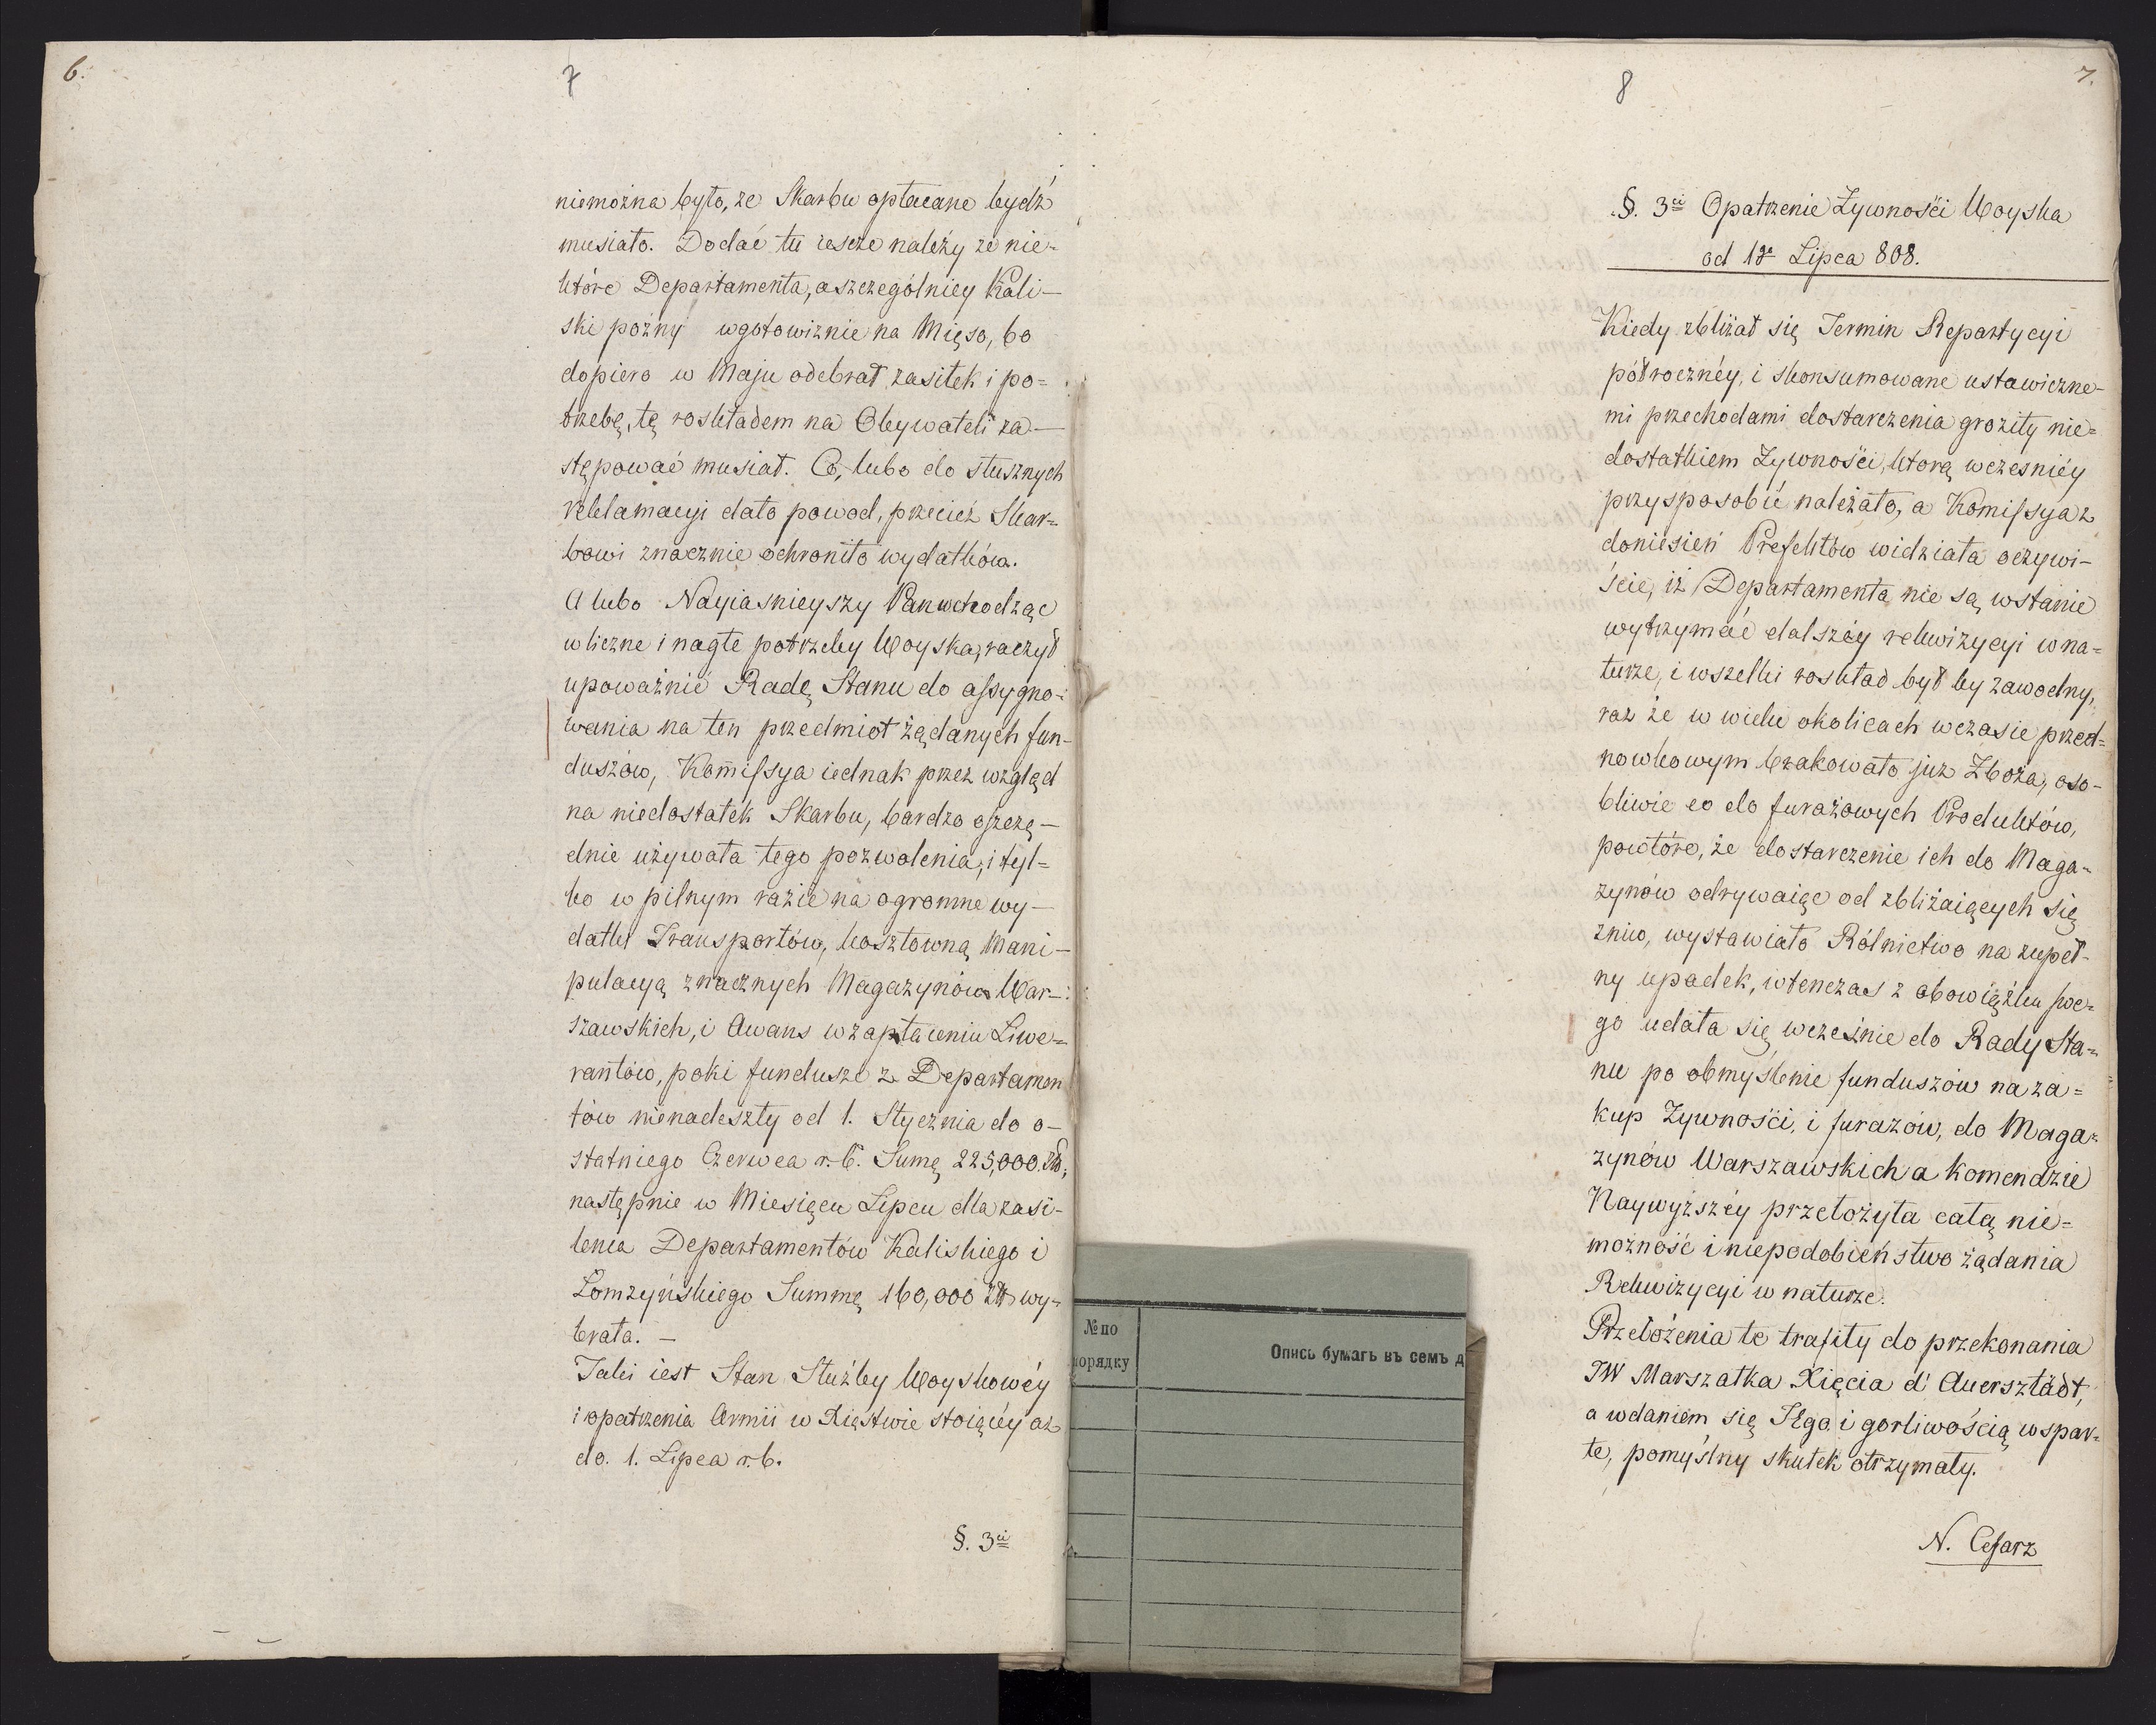 6.
7
niemożna było, ze Skarbu opłacane bydź
musiało. Dodać tu ieszcze należy że nie-
które Departamenta, a szczególniey Kali-
ski poźny w gotowiznie na Mięso, bo
dopiero w Maju odebrał zasiłek i po=
trzebę, tę roskładem na Obywateli za-
stępować musiał. Co, lubo do słusznych
reklamacyi dało powod, przecież Skar=
bowi znacznie ochroniło wydatków.
A lubo Nayiasnieyszy Pan wchodząc
w liczne i nagłe potrzeby Woyska, raczył
upoważnić Radę Stanu do assygno=
wania na ten przedmiot żądanych fun-
duszów, Kommissya iednak przez wzgląd
na niedostatek Skarbu, bardzo oszczę-
dnie używała tego pozwolenia, i tyl=
ko w pilnym razie na ogromne wy-
datki Transportów, kosztowną Mani-
pulacyą znacznych Magazynów War-
szawskich, i Awans w zapłaceniu Liwe=
rantów, poki fundusze z Departamen
tów nienadeszły od 1. Stycznia do o-
statniego Czerwca r. b. Sumę 225,000. Zł.,
następnie w Miesiącu Lipcu dla zasi-
lenia Departamentów Kaliskiego i
Łomzyńskiego Summę 160,000 Zł. wy=
brała. -
Taki iest Stan Służby Woyskowéy
i opatrzenia Armii w Xięstwie stoiącéy aż
do. 1. Lipca r. b.
§. 3ci
8
7.
§. 3ci Opatrzenie Żywności Woyska
od 1go Lipca 808.
Kiedy zbliżał się Termin Repartycyi
półrocznéy, i skonsumowane ustawiczne-
mi przechodami dostarczenia groziły nie=
dostatkiem Żywności, którą wcześniéy
przysposobić należało, a Komissya z
doniesień Prefektów widziała oczywi-
ście, iż Departamenta nie są wstanie
wytrzymać dalszéy rekwizycyi w na=
turze, i wszelki roskład był by zawodny,
raz że w wielu okolicach wczasie przed=
nowkowym brakowało już Zboża, oso-
bliwie co do furażowych Produktów,
powtóre, że dostarczenie ich do Maga-
zynów odrywaiąc od zbliżaiących się
żniw, wystawiało Rólnictwo na zupeł-
ny upadek, wtenczas z obowiązku swe-
go udała się wcześnie do Rady Sta-
nu po obmyślenie funduszów na za=
kup Żywności, i furażów, do Maga=
zynów Warszawskich a komendzie
Naywyższéy przełożyła całą nie=
możność i niepodobieństwo żądania
Rekwizycyi w naturze.
Przełożenia te trafiły do przekonania
JW Marszałka Xięcia d' Auersztädt,
a wdaniem się JEgo i gorliwością wspar-
te, pomyślny skutek otrzymały.
N. Cesarz
№ по
порядку
Опись бумагъ въ семъ д